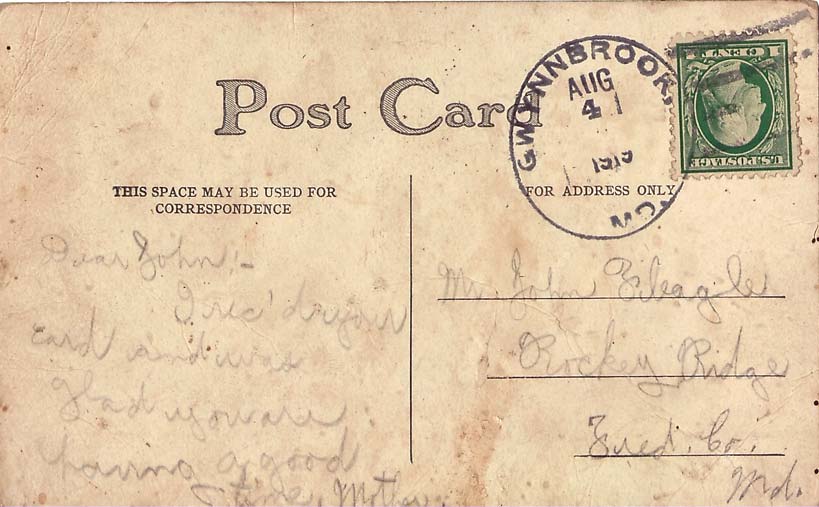 Post Card
GWYNNBROOK,
AUG
4
1919
MD.
1 CENT 1
U.S. POSTAGE
THIS SPACE MAY BE USED FOR
CORRESPONDENCE
FOR ADDRESS ONLY
Dear John:-
I rec'd your
card and was
glad you are
having a good
time, Mother.
Mr. John
Rockey Ridge
Fred. Co.
Md.